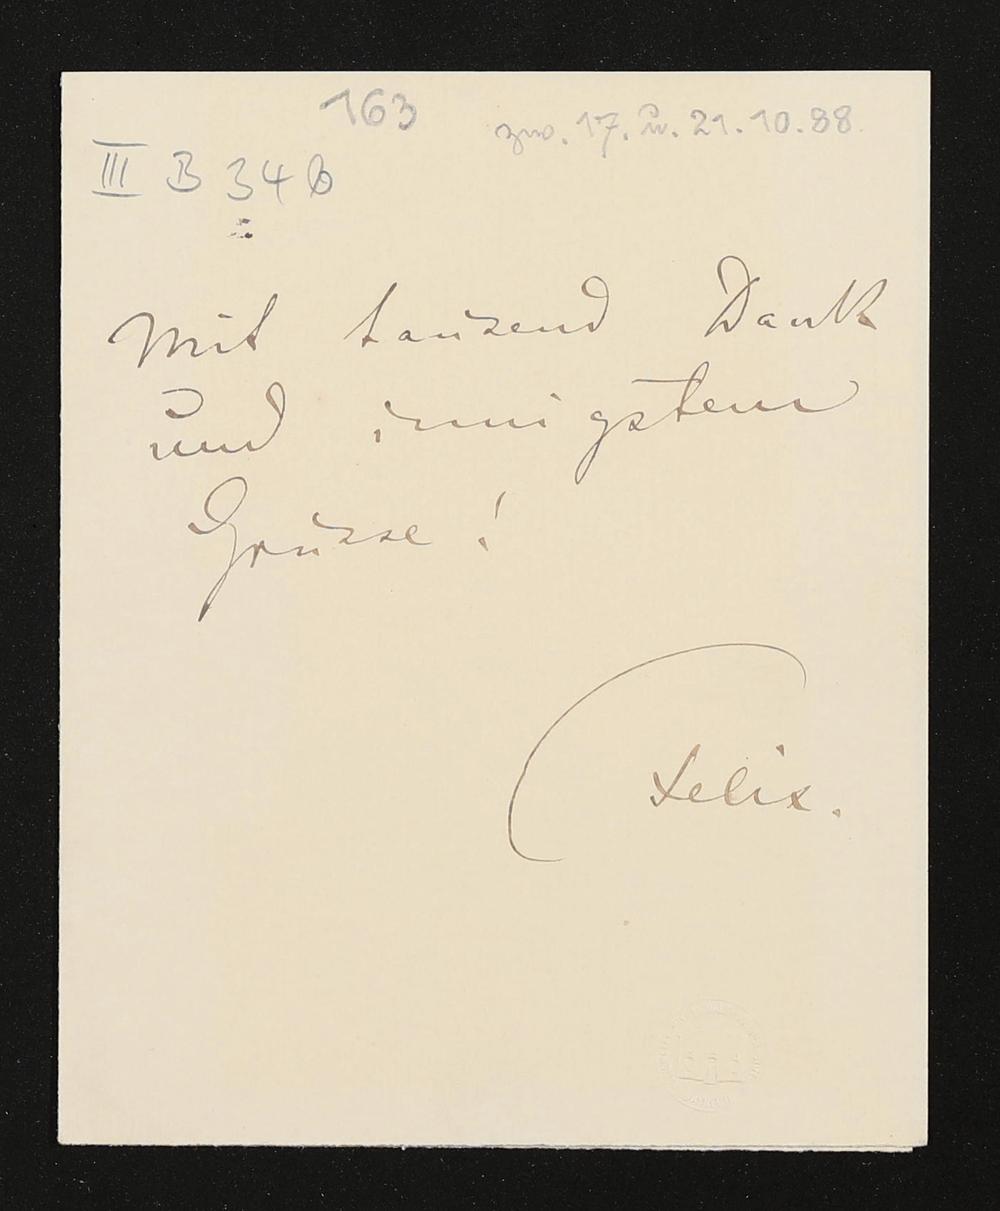 163
zw. 17. u. 21.10.88.
III B 34 b
Mit tausend Dank
und innigstem
Grüsse!
Felix.